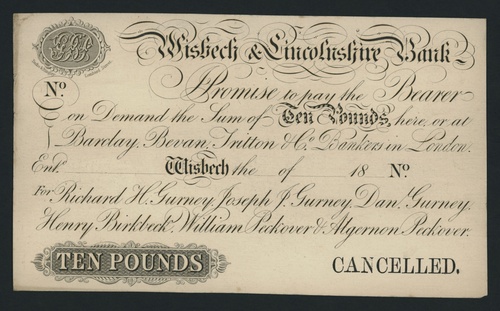 Wisbech & Lincolnshire Bank
No. Promise to pay the Bearer
on Demand the Sum of Ten Pounds, here, or at
Barclay, Bevan, Tritton & Co. Bankers in London.
Entd. Wisbech the of 18 No.
For Richard H. Gurney, Joseph J. Gurney, Danl. Gurney,
Henry Birkbeck, William Peckover & Algernon Peckover.
TEN POUNDS CANCELLED.